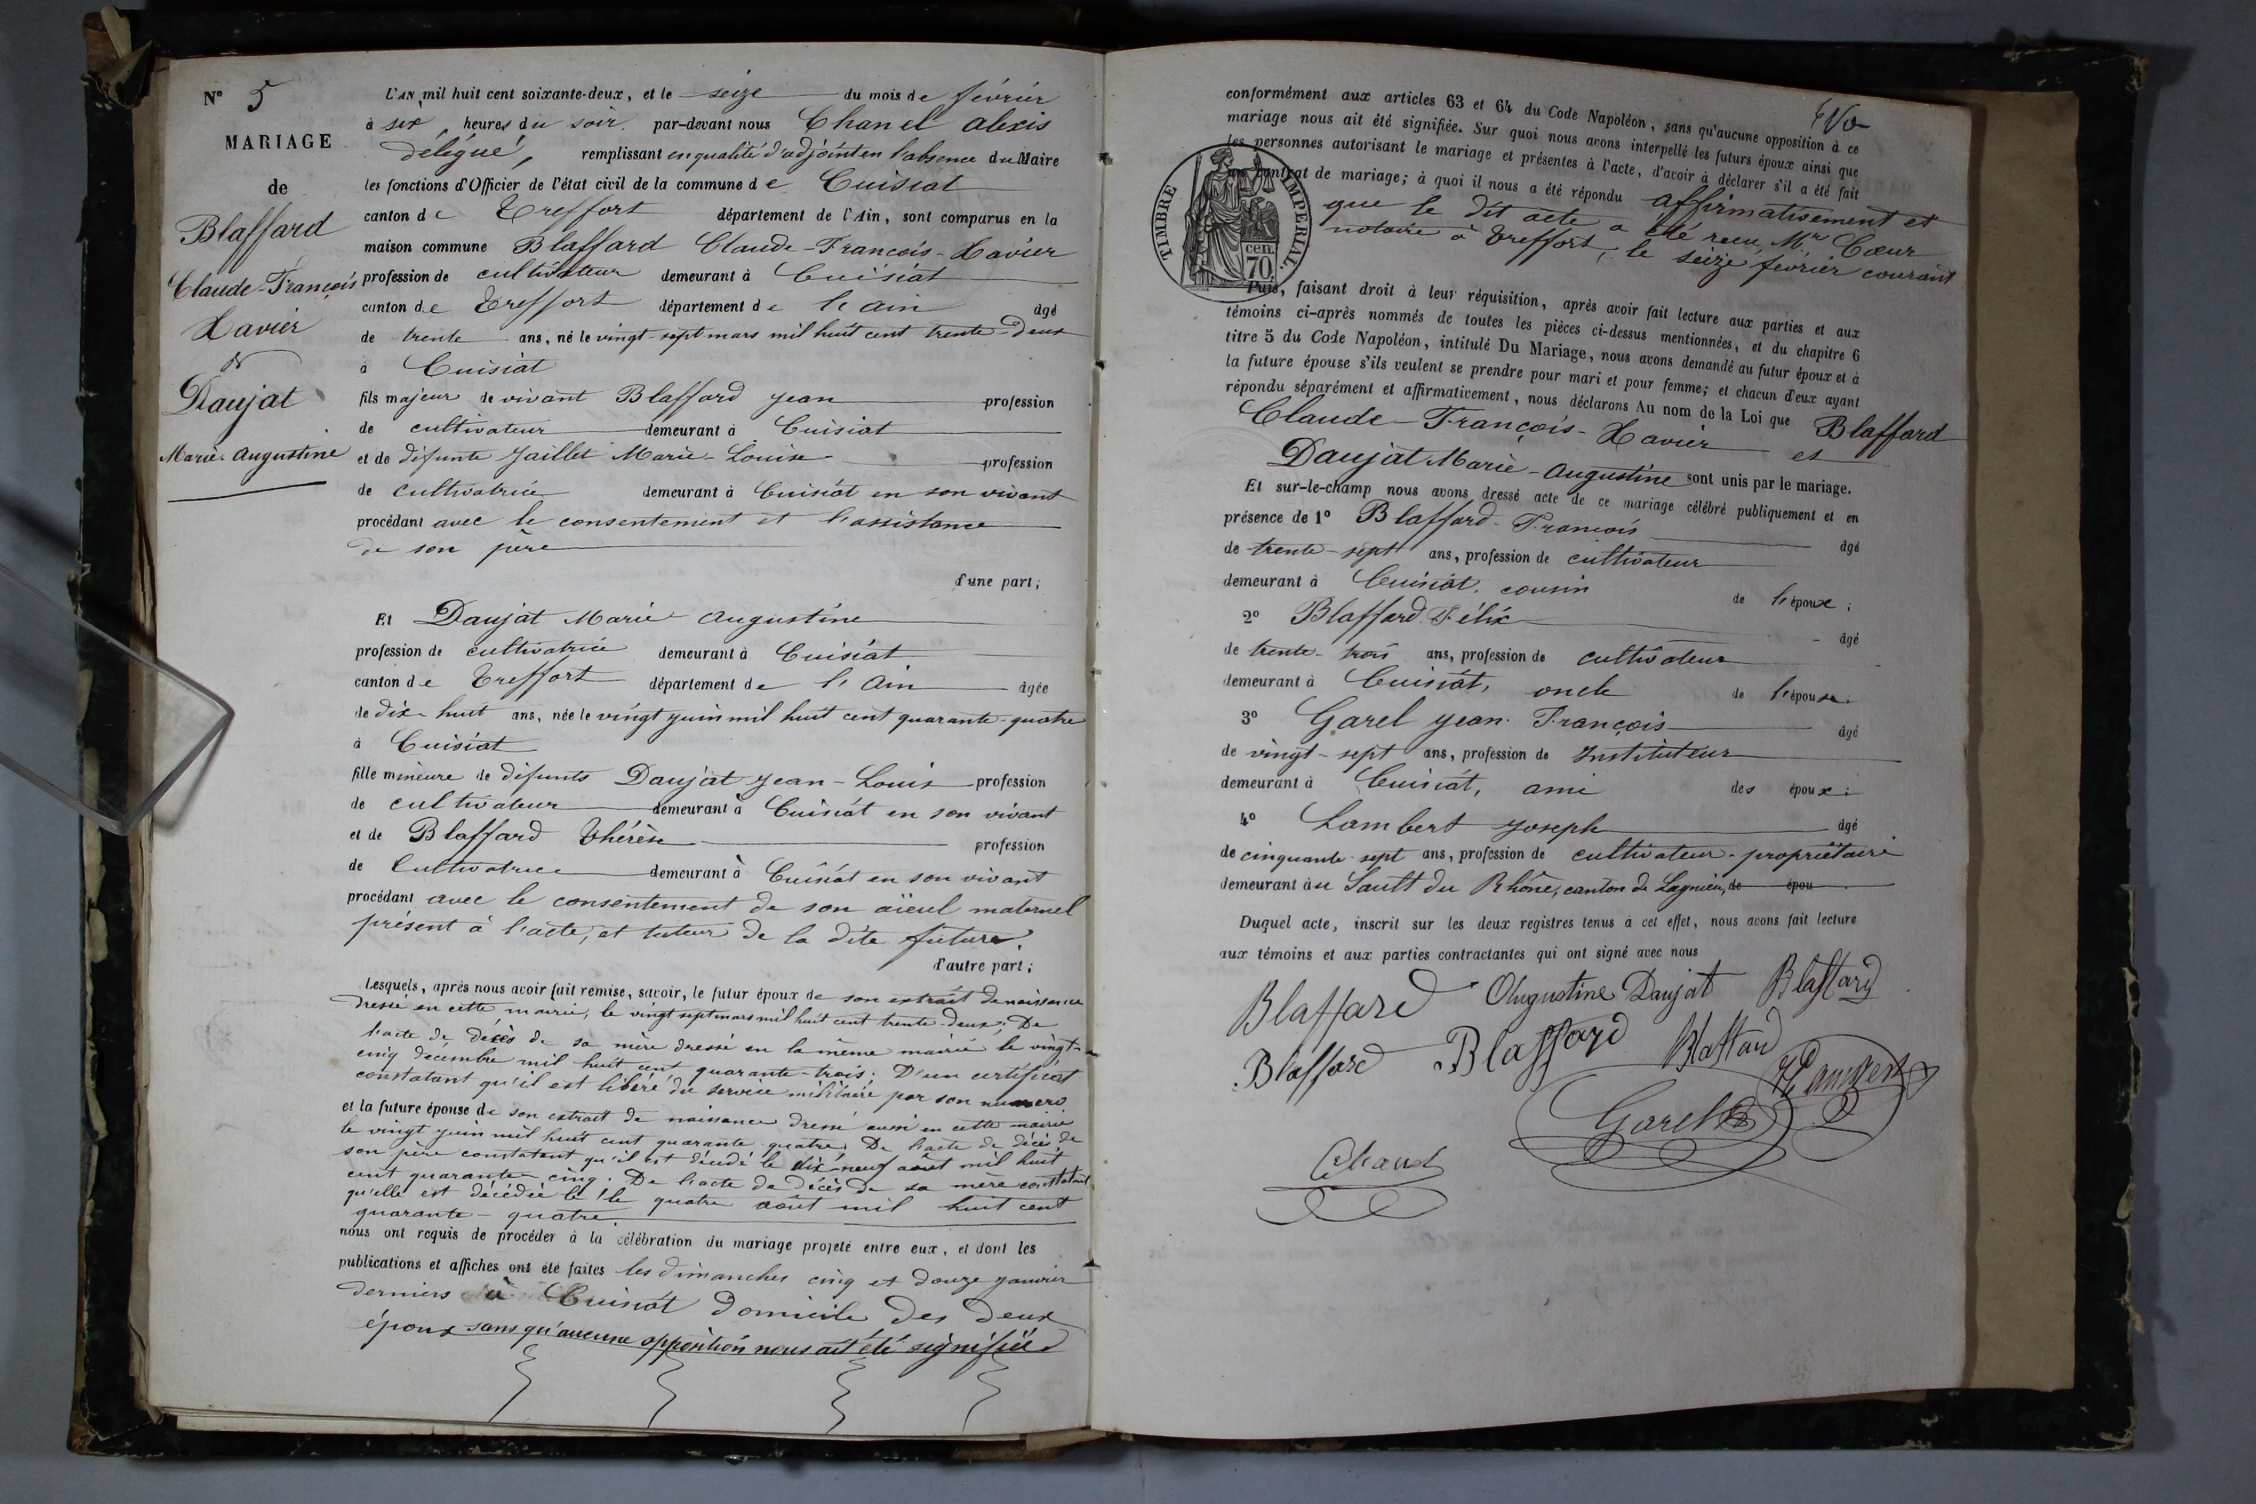 N° 5
MARIAGE
de
Blaffard
Claude-François
Xavier
&
Daujat
Marie-Augustine
L'AN mil huit cent soixante-deux, et le seize du mois de février
à six heures du soir. par-devant nous Chanel alexis
délégué, remplissant en qualité d'adjoint en l'absence du Maire
les fonctions d'Officier de l'état civil de la commune de Cuisiat
canton de Treffort département de l'Ain, sont comparus en la
maison commune Blaffard Claude-François-Xavier
profession de cultivateur demeurant à Cuisiat
canton de Treffort département de l'ain âgé
de trente ans, né le vingt-sept mars mil huit cent trente-deux
à Cuisiat
fils majeur de vivant Blaffard jean profession
de cultivateur demeurant à Cuisiat
et de défunte Jaillet Marie-Louise profession
de cultivatrice demeurant à Cuisiat en son vivant
procédant avec le consentement et l'assistance
de son père
d'une part;
Et Daujat Marie augustine
profession de cultivatrice demeurant à Cuisiat
canton de Treffort département de l'Ain âgée
de dix-huit ans, née le vingt juin mil huit cent quarante-quatre
à Cuisiat
fille mineure de défunts Daujat jean-Louis profession
de cultivateur demeurant à Cuisiat en son vivant
et de Blaffard Thérèse profession
de Cultivatrice demeurant à Cuisiat en son vivant
procédant avec le consentement de son aïeul maternel
présent à l'acte, et tuteur de la dite future.
d'autre part;
Lesquels, après nous avoir fait remise, savoir, le futur époux de son extrait de naissance
dressé en cette mairie, le vingt sept mars mil huit cent trente-deux; De
l'acte de décès de sa mère dressé en la même mairie le vingt-
cinq décembre mil huit cent quarante-trois; D'un certificat
constatant qu'il est libéré du service militaire par son numero
et la future épouse de son extrait de naissance dressé aussi en cette mairie
le vingt juin mil huit cent quarante quatre; De l'acte de décès de
son père constatant qu'il est décédé le dix-neuf août mil huit
cent quarante-cinq. De l'acte de décès de sa mère constatant
qu'elle est décédée le le quatre août mil huit cent
quarante-quatre.
nous ont requis de procéder à la célébration du mariage projeté entre eux, et dont les
publications et affiches ont été faites les dimanches cinq et douze janvier
derniers à Cuisiat domicile des deux
époux sans qu'aucune opposition nous ait été signifiée
conformément aux articles 63 et 64 du Code Napoléon, sans qu'aucune opposition à ce
mariage nous ait été signifiée. Sur quoi nous avons interpellé les futurs époux ainsi que
les personnes autorisant le mariage et présentes à l'acte, d'avoir à déclarer s'il a été fait
un contrat de mariage; à quoi il nous a été répondu affirmativement et
que le dit acte a été recu, Mr Cœur
notaire à Treffort, le seize février courant
TIMBRE IMPERIAL.
cen.
70
Puis, faisant droit à leur réquisition, après avoir fait lecture aux parties et aux
témoins ci-après nommés de toutes les pièces ci-dessus mentionnées, et du chapitre 6
titre 5 du Code Napoléon, intitulé Du Mariage, nous avons demandé au futur époux et à
la future épouse s'ils veulent se prendre pour mari et pour femme; et chacun d'eux ayant
répondu séparément et affirmativement, nous déclarons Au nom de la Loi que Blaffard
Claude-François-Xavier et
Daujat Marie-Augustine sont unis par le mariage.
Et sur-le-champ nous avons dressé acte de ce mariage célébré publiquement et en
présence de 1° Blaffard-François âgé
de trente-sept ans, profession de cultivateur
demeurant à Cuisiat, cousin de l'époux;
2° Blaffard Félix âgé
de trente-trois ans, profession de cultivateur
demeurant à Cuisiat, oncle de l'épouse.
3° Garel jean-François âgé
de vingt-sept ans, profession de Instituteur
demeurant à Cuisiat, ami des époux;
4° Lambert joseph âgé
de cinquante-sept ans, profession de cultivateur-propriétaire
demeurant au Sault du Rhône, canton de Lagnieu, de épou
Duquel acte, inscrit sur les deux registres tenus à cet effet, nous avons fait lecture
aux témoins et aux parties contractantes qui ont signé avec nous
Blaffard Augustine Daujat Blaffard
Blaffard Blaffard Blaffard Lambert
Garel
Chanel